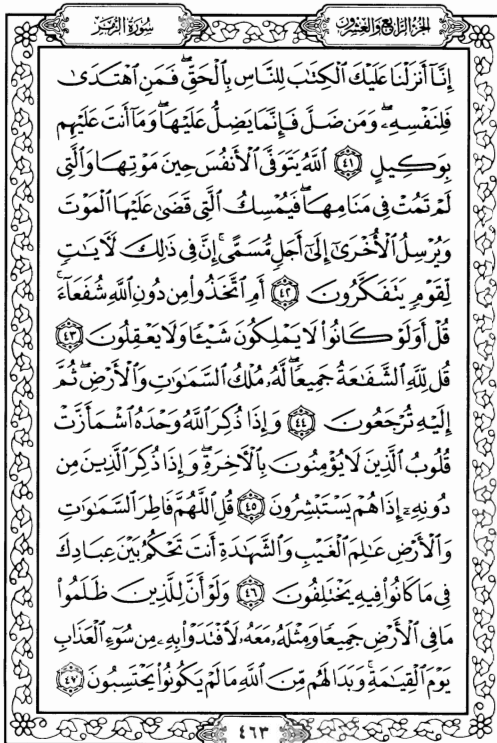 الجزء الرابع والعشرون
سورة الزمر
إِنَّآ أَنزَلْنَا عَلَيْكَ ٱلْكِتَـٰبَ لِلنَّاسِ بِٱلْحَقِّ ۖ فَمَنِ ٱهْتَدَىٰ
فَلِنَفْسِهِۦ ۖ وَمَن ضَلَّ فَإِنَّمَا يَضِلُّ عَلَيْهَا ۖ وَمَآ أَنتَ عَلَيْهِم
بِوَكِيلٍ ٤١ ٱللَّهُ يَتَوَفَّى ٱلْأَنفُسَ حِينَ مَوْتِهَا وَٱلَّتِى
لَمْ تَمُتْ فِى مَنَامِهَا ۖ فَيُمْسِكُ ٱلَّتِى قَضَىٰ عَلَيْهَا ٱلْمَوْتَ
وَيُرْسِلُ ٱلْأُخْرَىٰٓ إِلَىٰٓ أَجَلٍ مُّسَمًّى ۚ إِنَّ فِى ذَٰلِكَ لَـَٔايَـٰتٍ
لِّقَوْمٍ يَتَفَكَّرُونَ ٤٢ أَمِ ٱتَّخَذُوا۟ مِن دُونِ ٱللَّهِ شُفَعَآءَ ۚ
قُلْ أَوَلَوْ كَانُوا۟ لَا يَمْلِكُونَ شَيْـًٔا وَلَا يَعْقِلُونَ ٤٣
قُل لِّلَّهِ ٱلشَّفَـٰعَةُ جَمِيعًا ۖ لَّهُۥ مُلْكُ ٱلسَّمَـٰوَٰتِ وَٱلْأَرْضِ ۖ ثُمَّ
إِلَيْهِ تُرْجَعُونَ ٤٤ وَإِذَا ذُكِرَ ٱللَّهُ وَحْدَهُ ٱشْمَأَزَّتْ
قُلُوبُ ٱلَّذِينَ لَا يُؤْمِنُونَ بِٱلْـَٔاخِرَةِ ۖ وَإِذَا ذُكِرَ ٱلَّذِينَ مِن
دُونِهِۦٓ إِذَا هُمْ يَسْتَبْشِرُونَ ٤٥ قُلِ ٱللَّهُمَّ فَاطِرَ ٱلسَّمَـٰوَٰتِ
وَٱلْأَرْضِ عَـٰلِمَ ٱلْغَيْبِ وَٱلشَّهَـٰدَةِ أَنتَ تَحْكُمُ بَيْنَ عِبَادِكَ
فِى مَا كَانُوا۟ فِيهِ يَخْتَلِفُونَ ٤٦ وَلَوْ أَنَّ لِلَّذِينَ ظَلَمُوا۟
مَا فِى ٱلْأَرْضِ جَمِيعًا وَمِثْلَهُۥ مَعَهُۥ لَٱفْتَدَوْا۟ بِهِۦ مِن سُوٓءِ ٱلْعَذَابِ
يَوْمَ ٱلْقِيَـٰمَةِ ۚ وَبَدَا لَهُم مِّنَ ٱللَّهِ مَا لَمْ يَكُونُوا۟ يَحْتَسِبُونَ ٤٧
٤٦٣